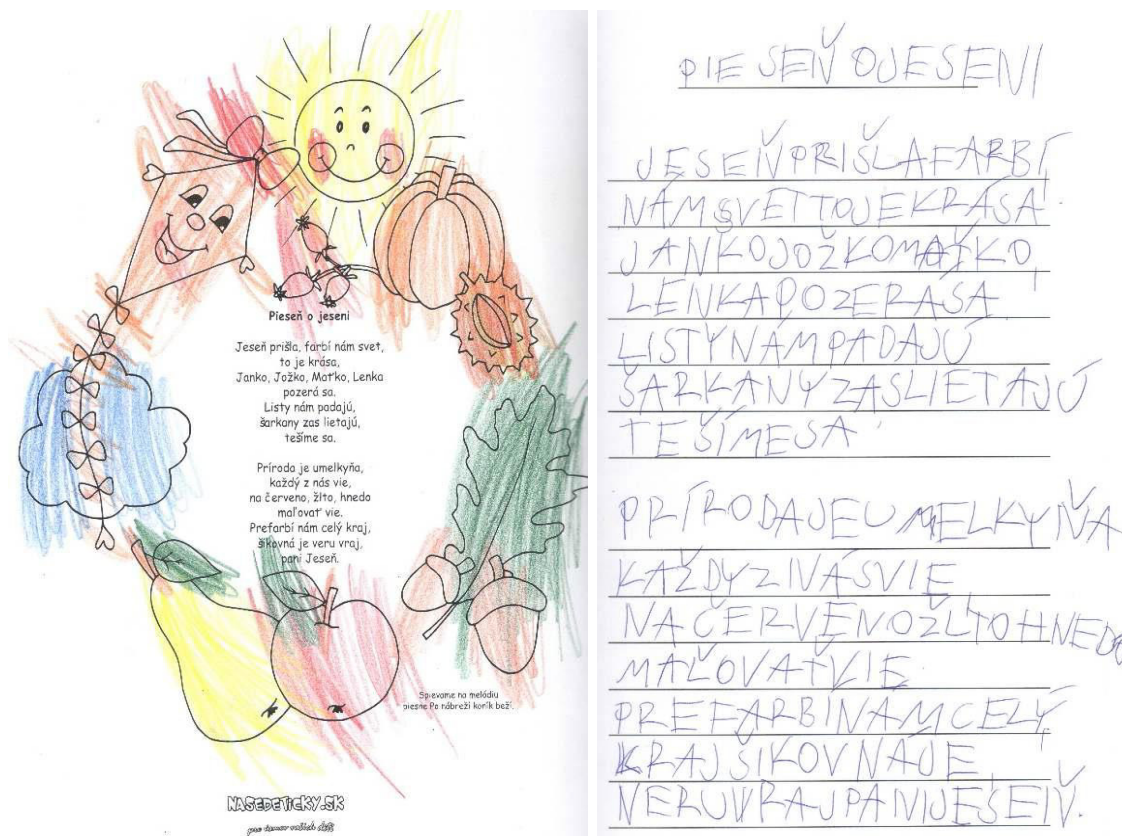 Pieseň o jeseni
Jeseň prišla, farbí nám svet,
to je krása,
Janko, Jožko, Maťko, Lenka
pozerá sa.
Listy nám padajú,
šarkany zas lietajú,
tešíme sa.
Príroda je umelkyňa,
každý z nás vie,
na červeno, žlto, hnedo
maľovať vie.
Prefarbí nám celý kraj,
šikovná je veru vraj,
pani Jeseň.
Spievame na melódiu
piesne Po nábreží koník beží.
NASEDETICKY.SK
pre úsmev vašich detí
PIESEŇ OJESENI
JESEŇPRIŠLAFARBÍ
NÁMSVETTOJEKRÁSA
JANKOJOŽKOMAŤKO
LENKAPOZERÁSA
LISTYNÁMPADAJÚ
ŠARKANYZASLIETAJÚ
TEŠÍMESA
PRÍRODAJEUMELKYŇA
KAŽDYZNÁSVIE
NAČERVENOŽLTOHNEDO
MAĽOVAŤVIE
PREFARBINAMCELÝ
KRAJŠIKOVNÁJE
VERUVRAJPANIJESEŇ.